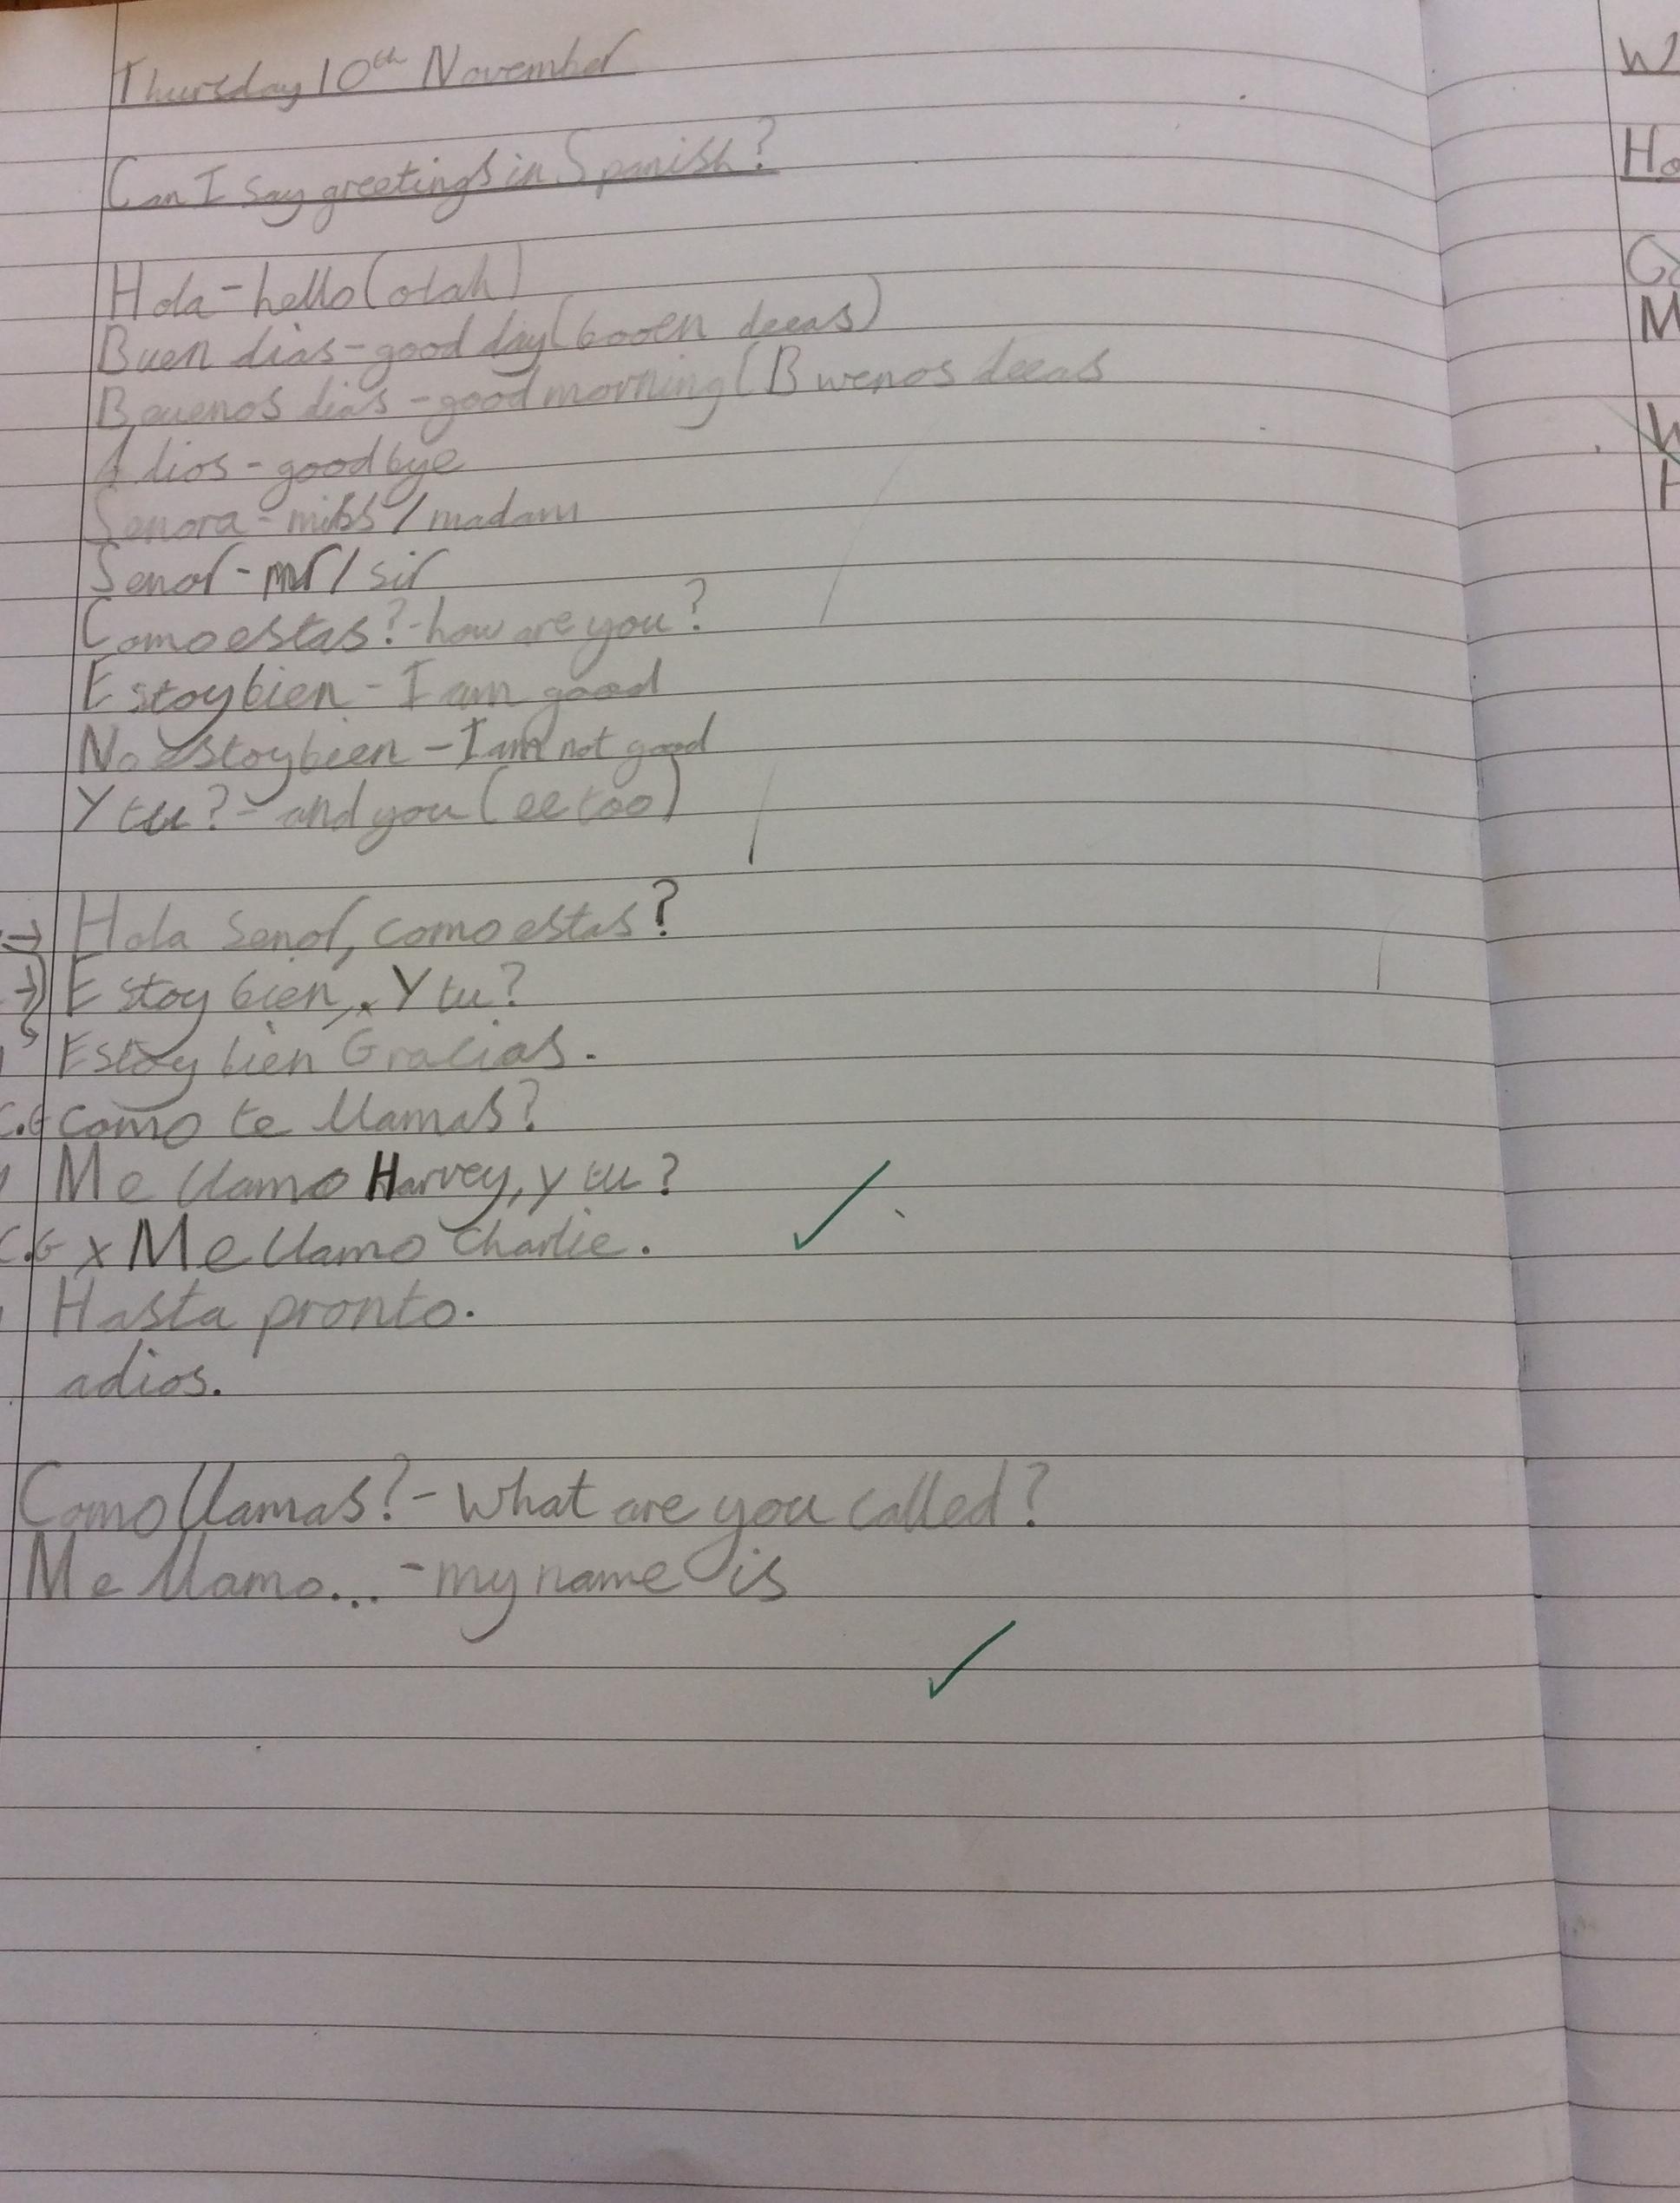 Thursday 10th November
Can I say greetings in Spanish?
Hola - hello (olah)
Buen dias - good day (booen deeas)
Bauenos dias - good morning (Bwenos deeas
Adios - goodbye
Senora - miss / madam
Senor - mr / sir
Como estas? - how are you?
Estoy bien - I am good
No estoy bien - I am not good
Y tu? - and you (ee too)
→ Hola Senor, como estas?
→ Estoy bien, Y tu?
Estoy bien Gracias.
C.G Como te llamas?
Me llamo Harvey, y tu?
C.G x Me llamo Charlie.
Hasta pronto.
adios.
Como llamas? - What are you called?
Me llamo... - my name is
W
Ho
M
W
H